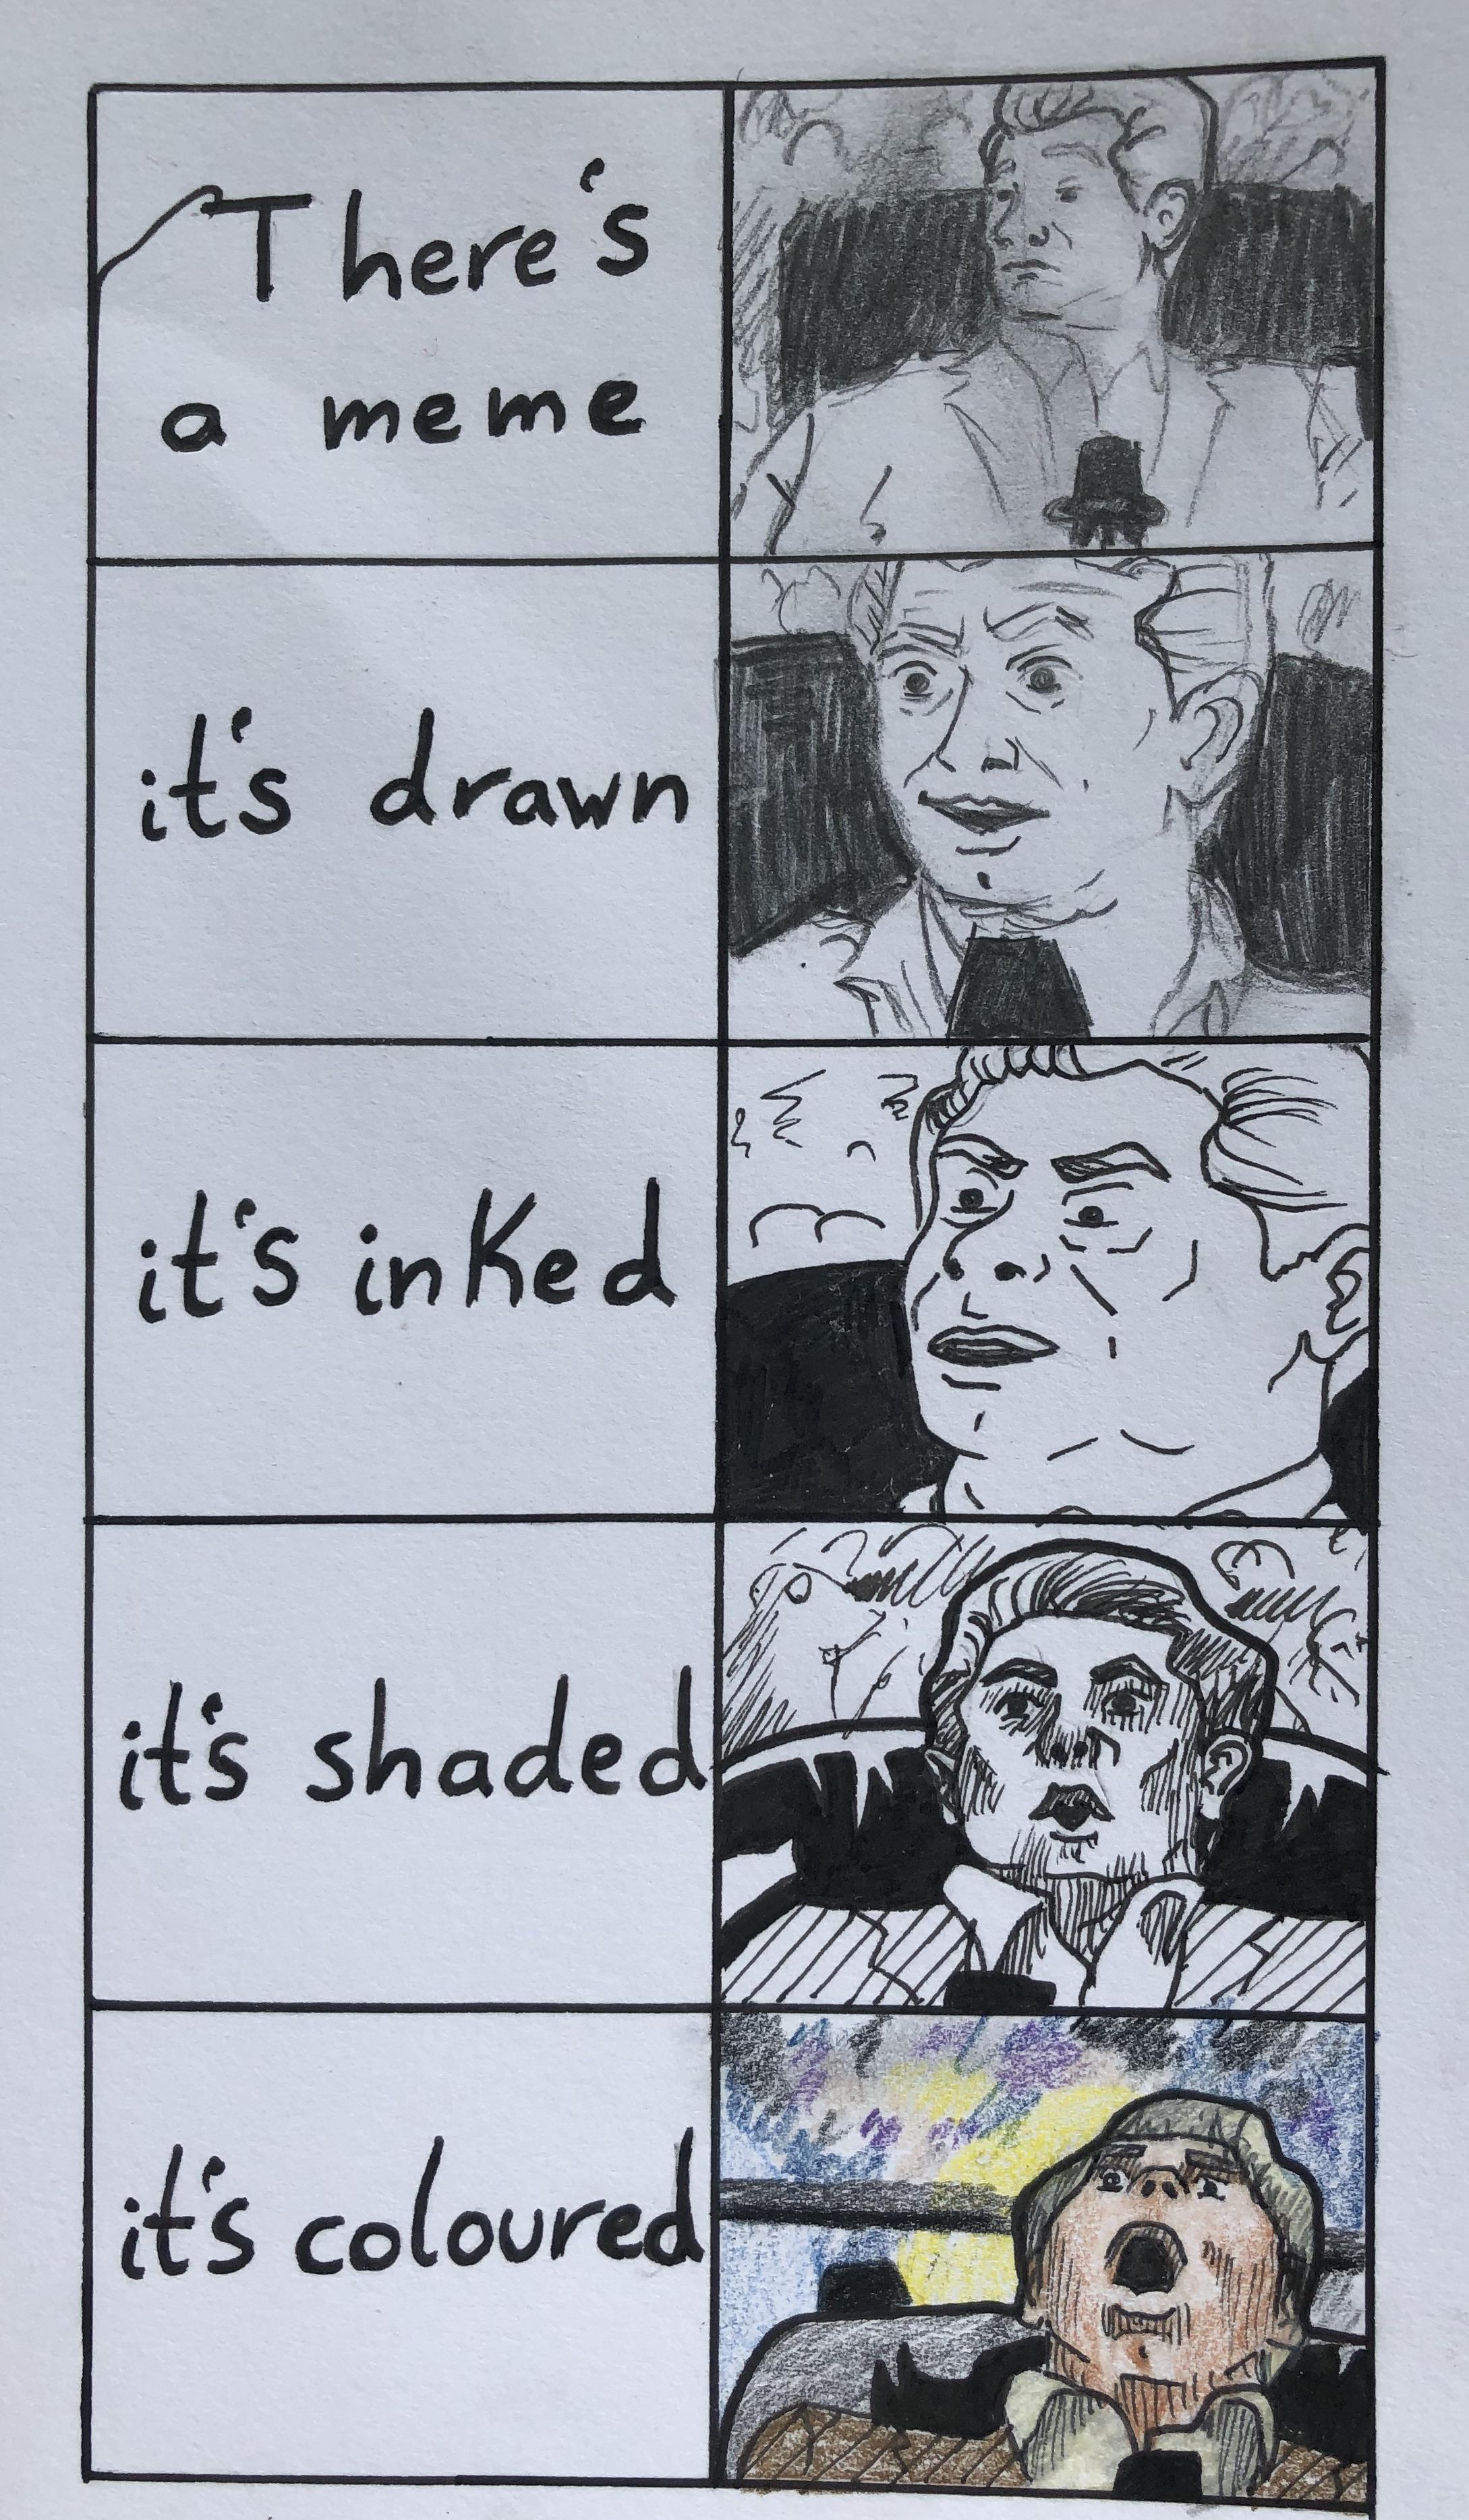 There's
a meme
it's drawn
it's inked
it's shaded
it's coloured